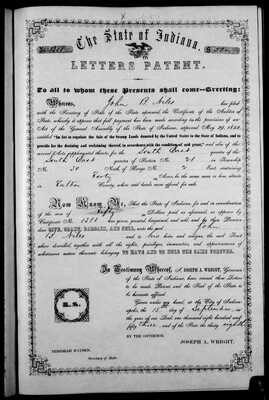 The State of Indiana.
LETTERS PATENT.
To all to whom these Presents shall come—Greeting:
Whereas, John B. Niles has filed
with the Secretary of State of the State aforesaid the Certificate of the Auditor of
State, whereby it appears that full payment has been made according to the provisions of an
Act of the General Assembly of the State of Indiana, approved May 29, 1852,
entitled "An Act to regulate the Sale of the Swamp Lands donated by the United States to the State of Indiana, and to
provide for the draining and reclaiming thereof, in accordance with the condition of said grant," and also of
South East
South East quarter of Section No. 21 in Township
No. 30 North of Range No. 2 East containing
Forty Acres, be the same more or less, situate
in Fulton County, where said lands were offered for sale.
Now Know Ye, That the State of Indiana, for and in consideration
of the sum of Fifty Dollars paid as aforesaid as appears by
Certificate No. 1288 has given, granted, bargained and sold, and by these Presents
does GIVE, GRANT, BARGAIN, AND SELL, unto the said John
B. Niles and to his heirs and assigns, the said Tract
above described, together with all the rights, privileges, immunities, and appurtenances of
whatsoever nature thereunto belonging, TO HAVE AND TO HOLD THE SAME FOREVER.
In Testimony Whereof, I, JOSEPH A. WRIGHT, Governor
of the State of Indiana, have caused these Letters
to be made Patent, and the Seal of the State to
be hereunto affixed.
Given under my hand, at the City of Indiana-
polis, the 15 day of September in the
year of our Lord one thousand eight hundred and
fifty three and of the State the thirty eighth
BY THE GOVERNOR,
L.S.
JOSEPH A. WRIGHT.
NEHEMIAH HAYDEN,
Secretary of State.